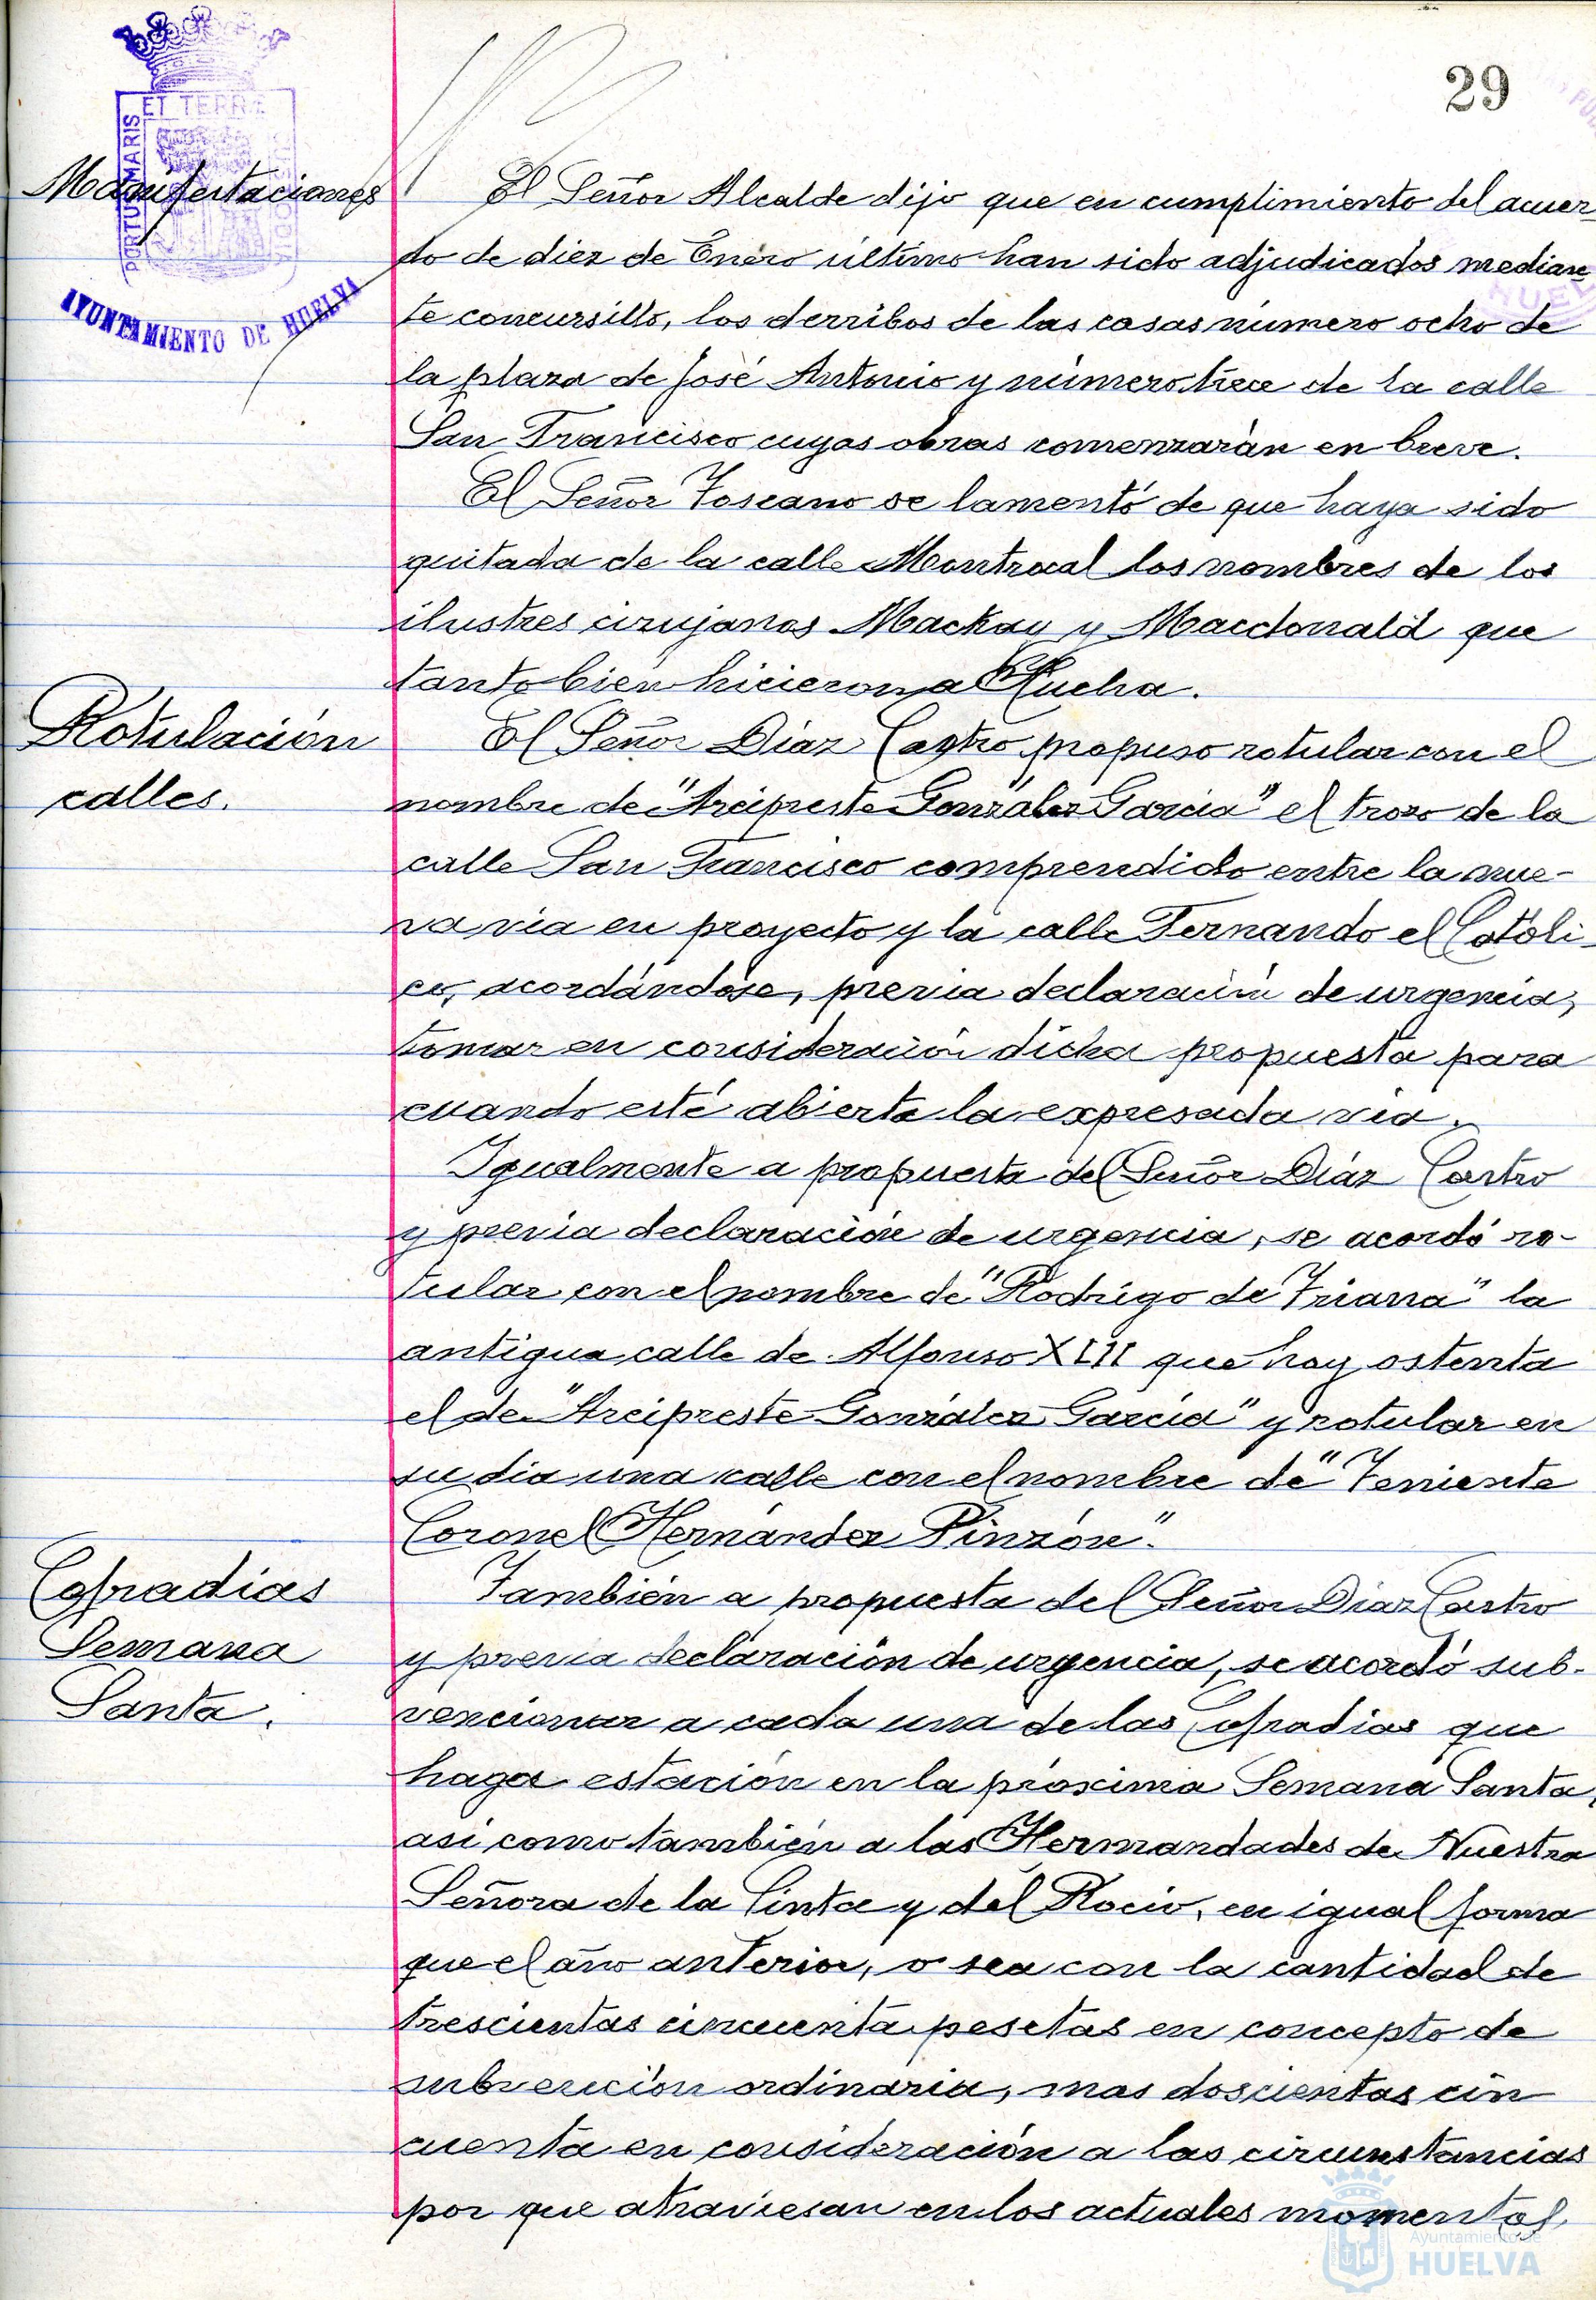 29
PORTUS MARIS ET TERRE
AYUNTAMIENTO DE HUELVA
Manifestaciones
El Señor Alcalde dijo que en cumplimiento del acuer-
do de diez de Enero último han sido adjudicados median
te concursillo, los derribos de las casas número ocho de
la plaza de José Antonio y número trece de la calle
San Francisco cuyas obras comenzarán en breve.
El Señor Toscano se lamentó de que haya sido
quitada de la calle Montrocal los nombres de los
ilustres cirujanos Mackay y Macdonald que
tanto bien hicieron a Huelva.
Rotulación
calles.
El Señor Díaz Castro propuso rotular con el
nombre de "Arcipreste González García" el trozo de la
calle San Francisco comprendido entre la nue-
va via en proyecto y la calle Fernando el Católi-
co, acordándose, previa declaración de urgencia,
tomar en consideración dicha propuesta para
cuando esté abierta la expresada via.
Igualmente a propuesta del Señor Díaz Castro
y previa declaración de urgencia, se acordó ro-
tular con el nombre de "Rodrigo de Triana" la
antigua calle de Alfonso XIII que hoy ostenta
el de "Arcipreste González García" y rotular en
su dia una calle con el nombre de "Teniente
Coronel Hernández Pinzón".
Cofradias
Semana
Santa.
También a propuesta del Señor Diaz Castro
y previa declaración de urgencia, se acordó sub-
vencionar a cada una de las Cofradias que
haga estación en la próxima Semana Santa,
asi como también a las Hermandades de Nuestra
Señora de la Cinta y del Rocio, en igual forma
que el año anterior, o sea con la cantidad de
trescientas cincuenta pesetas en concepto de
subvención ordinaria, mas doscientas cin
cuenta en consideración a las circunstancias
por que atraviesan en los actuales momentos,
Ayuntamiento de
HUELVA